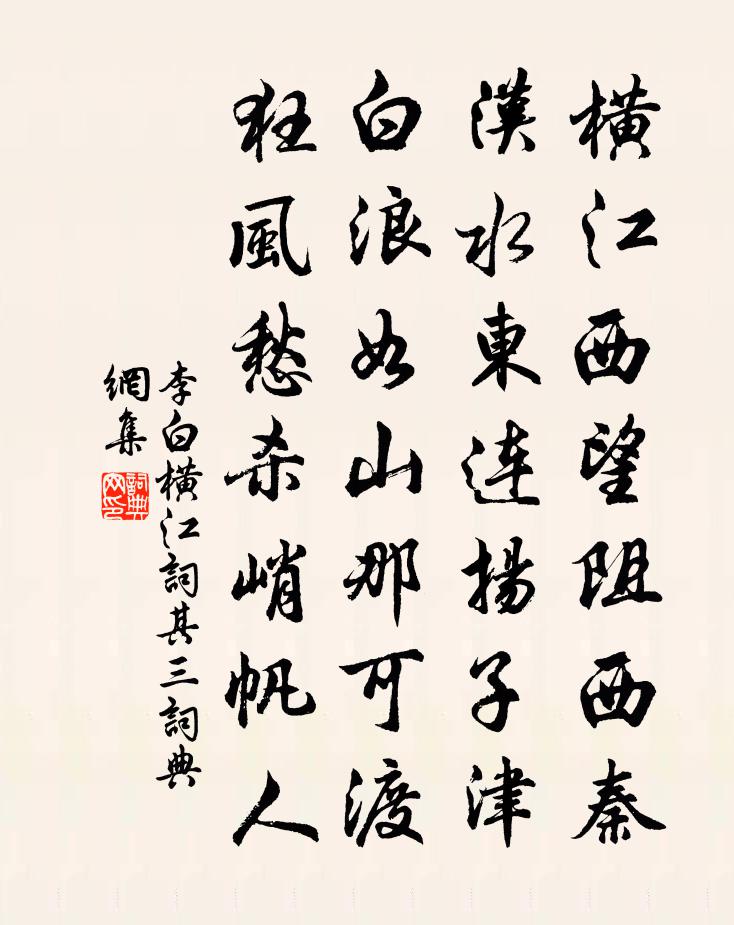 橫江西望阻西秦
漢水東連揚子津
白浪如山那可渡
狂風愁杀峭帆人
李白橫江詞其三詞典
網集
詞典
网印